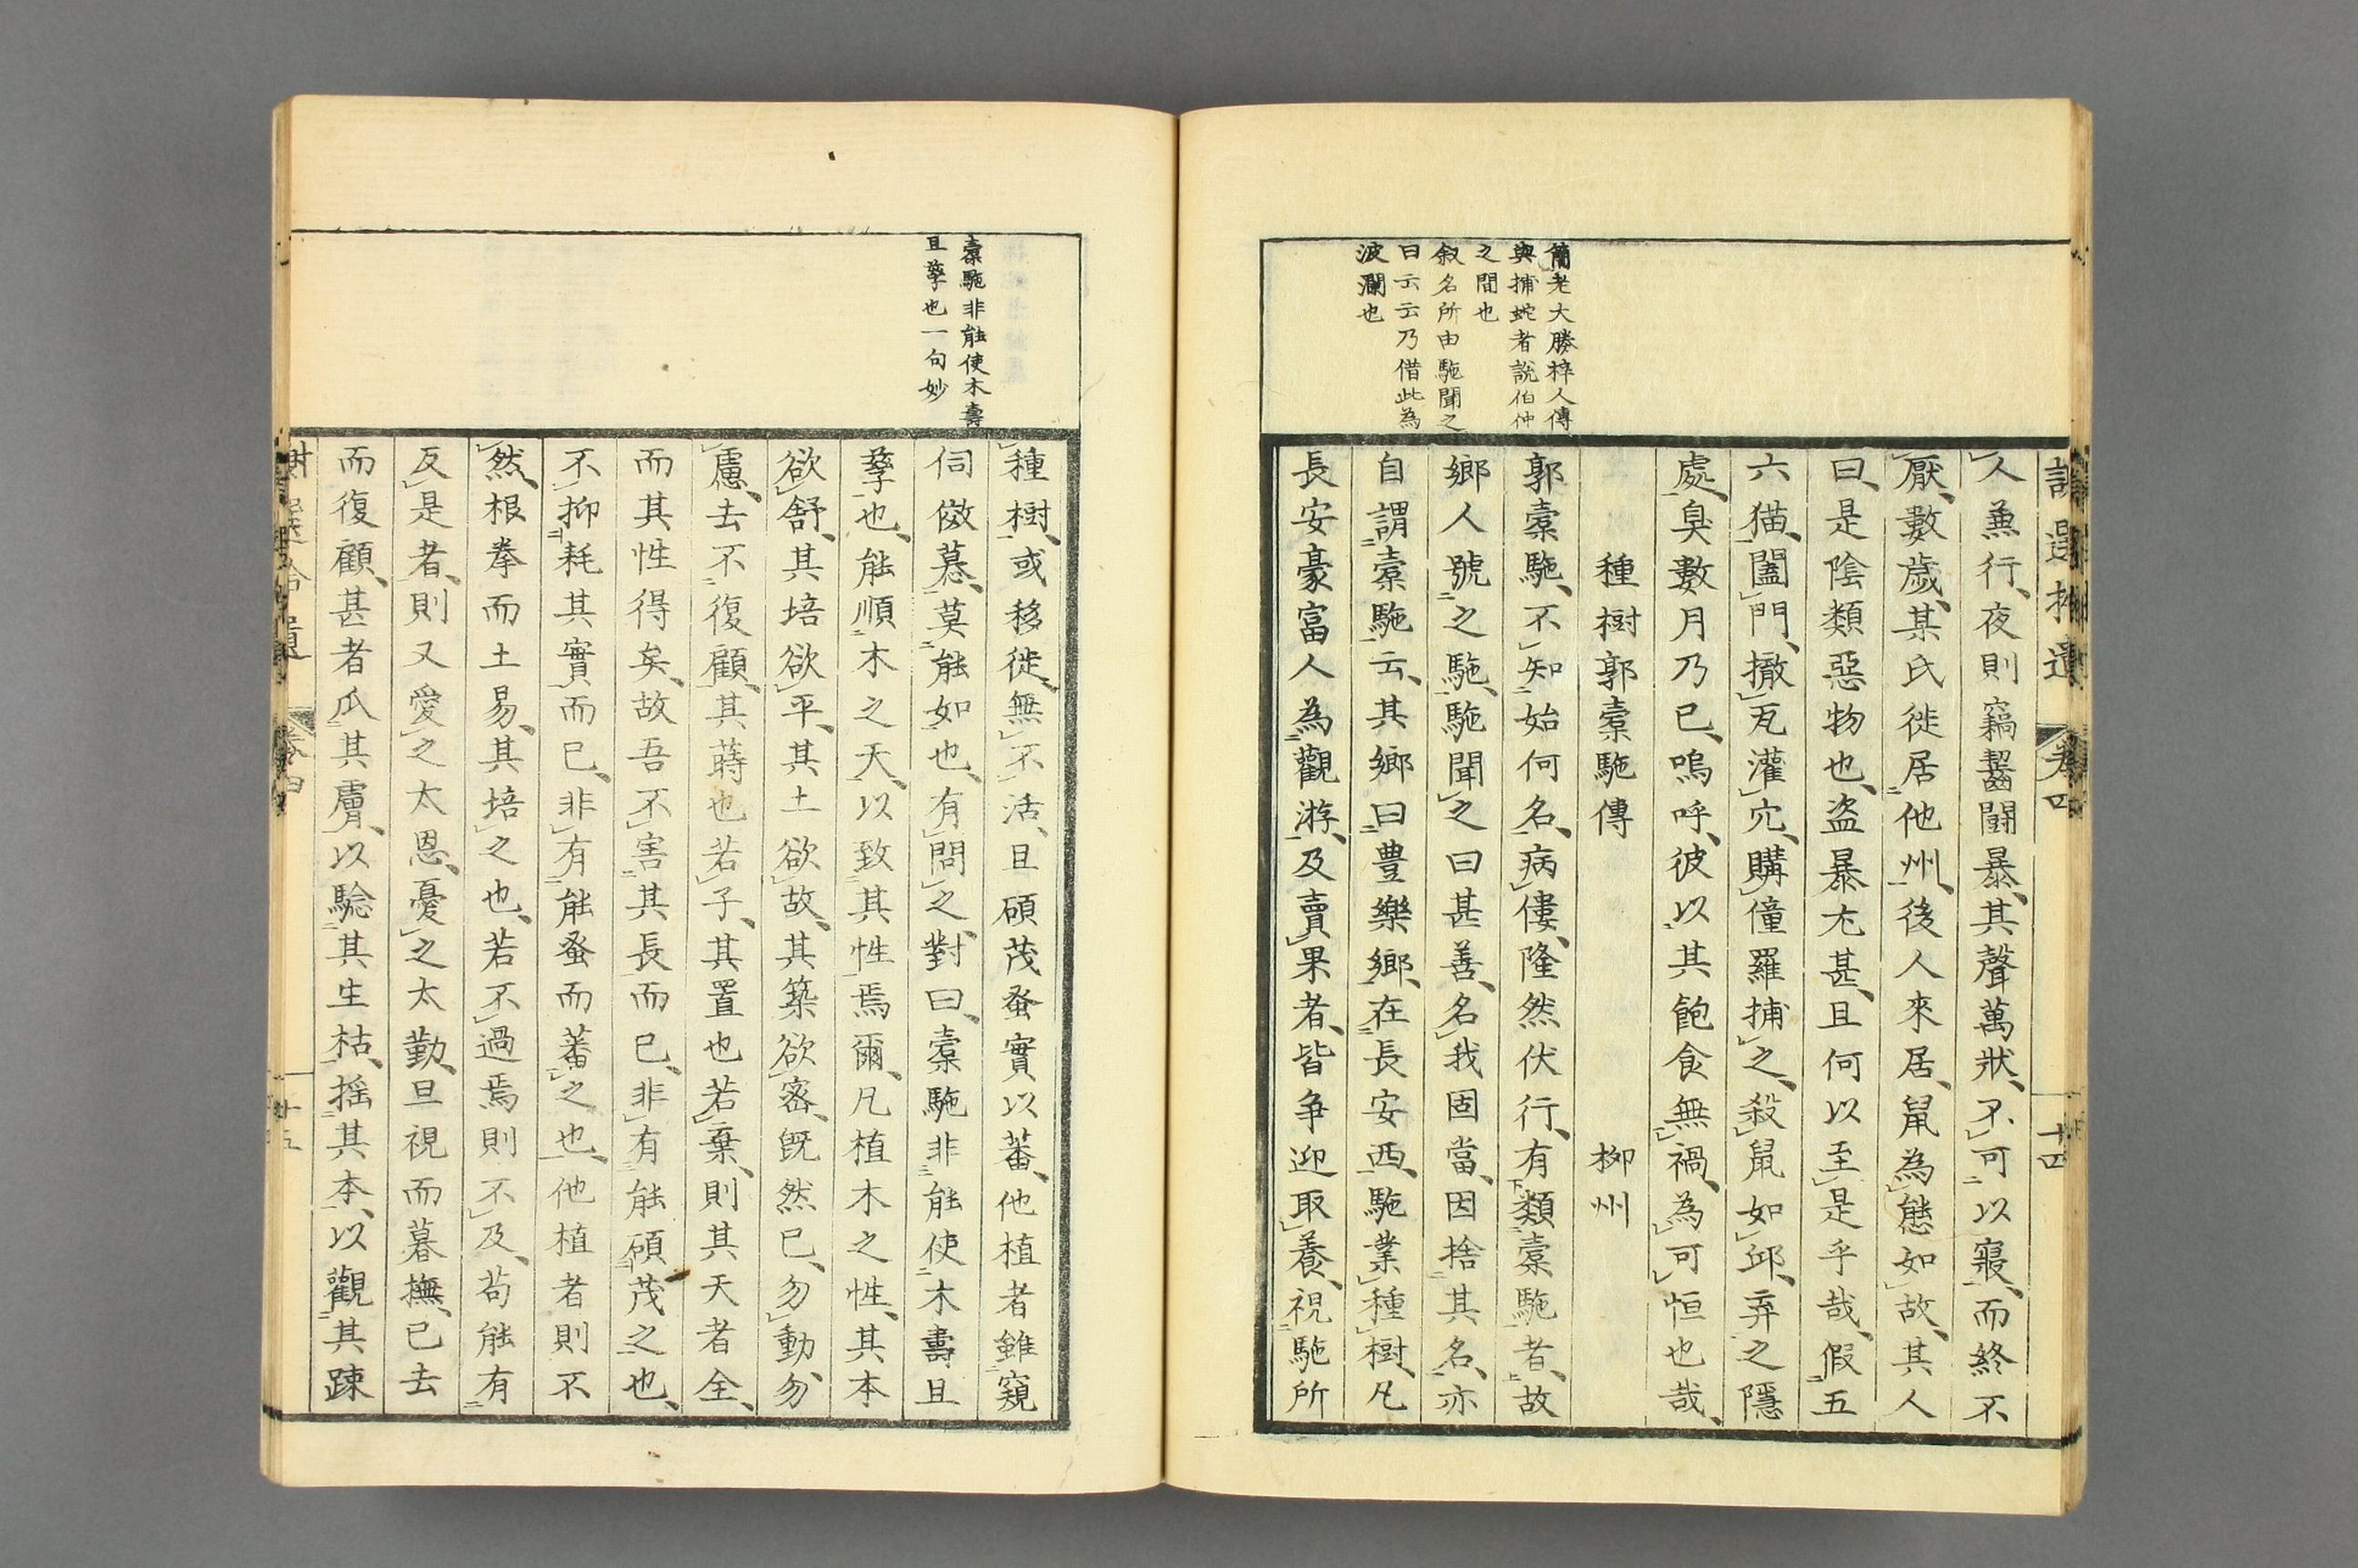 人兼行、夜則竊齧鬪暴、其聲萬狀、不可以寢、而終不
厭、數歲、某氏徙居他州、後人來居、鼠為態如故、其人
曰、是陰類惡物也、盜暴尤甚、且何以至是乎哉、假五
六猫、闔門、撤瓦灌穴、購僮羅捕之、殺鼠如邱、弃之隱
處、臭數月乃已、嗚呼、彼以其飽食無禍、為可恒也哉、
種樹郭槖駞傳 柳州
郭槖駞、不知始何名、病僂、隆然伏行、有類槖駞者、故
鄉人號之駞、駞聞之曰甚善、名我固當、因捨其名、亦
自謂槖駞云、其鄉曰豐樂鄉、在長安西、駞業種樹、凡
長安豪富人為觀游、及賣果者、皆争迎取養、視駞所
簡老大勝梓人傳
與捕蛇者說伯仲
之間也
叙名所由駞聞之
曰云云乃借此為
波瀾也
種樹、或移徙、無不活、且碩茂蚤實以蕃、他植者雖窺
伺傚慕、莫能如也、有問之、對曰、槖駞非能使木壽且
孳也、能順木之天、以致其性焉爾、凡植木之性、其本
欲舒、其培欲平、其土欲故、其築欲密、既然已、勿動、勿
慮、去不復顧、其蒔也若子、其置也若棄、則其天者全、
而其性得矣、故吾不害其長而已、非有能碩茂之也、
不抑耗其實而已、非有能蚤而蕃之也、他植者則不
然、根拳而土易、其培之也、若不過焉則不及、苟能有
反是者、則又愛之太恩、憂之太勤、旦視而暮撫、已去
而復顧、甚者爪其膚、以驗其生枯、搖其本、以觀其疎
槖駞非能使木壽
且孳也一句妙
卷四
十四